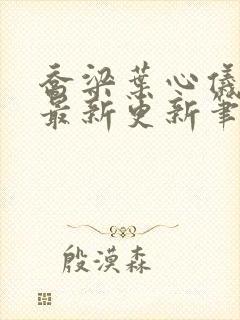 乔梁叶心仪
最新更新笔
殷漠森